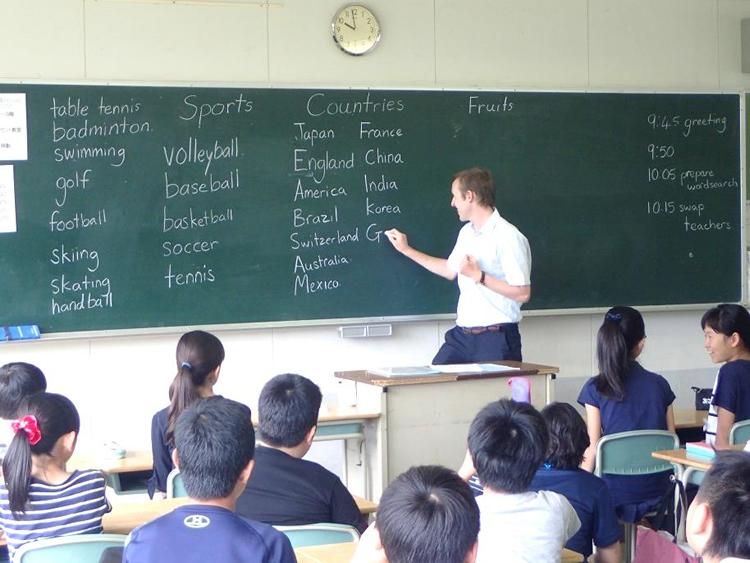 table tennis
badminton
swimming
golf
football
skiing
skating
handball
Sports
volleyball
baseball
basketball
soccer
tennis
Countries
Japan France
England China
America India
Brazil Korea
Switzerland G
Australia
Mexico
Fruits
9:45 greeting
9:50
10.05 prepare
wordsearch
10.15 swap
teachers